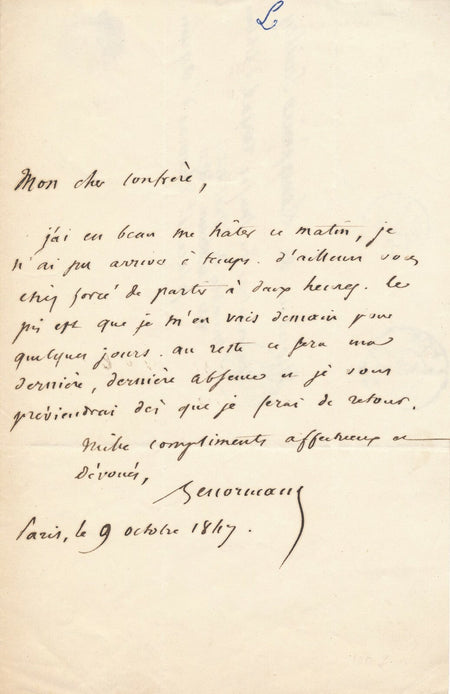 L
Mon cher confrère,
j'ai eu beau me hâter ce matin, je
n'ai pu arriver à temps. d'ailleurs vous
étiez forcé de partir à deux heures. le
pis est que je m'en vais demain pour
quelques jours. au reste ce sera ma
dernière, dernière absence et je vous
préviendrai dès que je serai de retour.
Mille compliments affectueux et
dévoués,
Lenormant
Paris, le 9 octobre 1847.